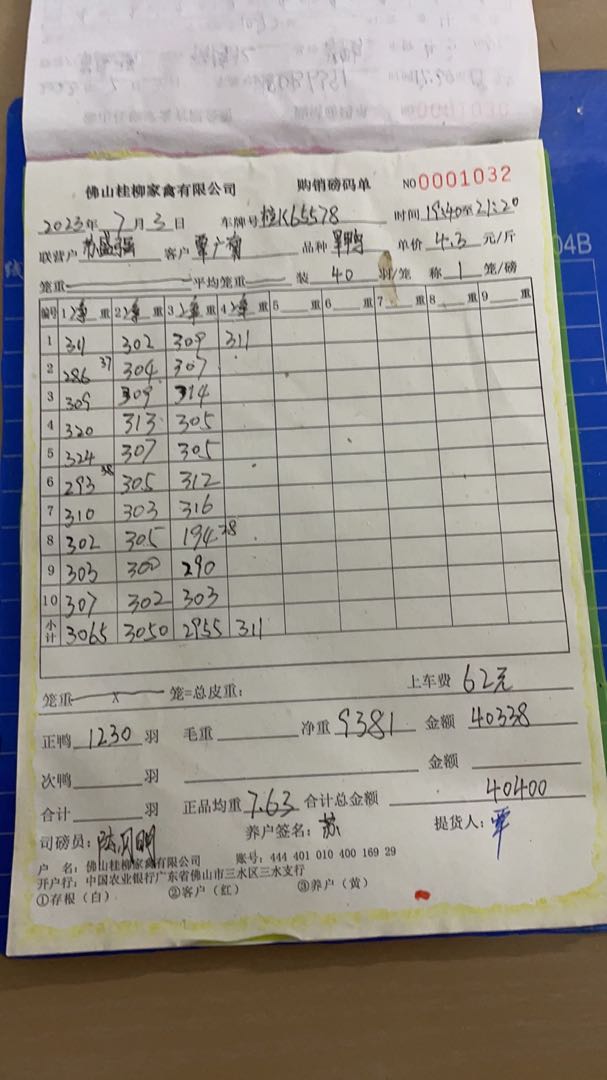 佛山桂柳家禽有限公司 购销磅码单 NO 0001032
2023年7月3日 车牌号 桂K65578 时间 19:40至21:20
联营户 苏盛强 客户 覃广 品种 旱鸭 单价 4.3 元/斤
笼重 平均笼重 装 40 羽/笼 称 1 笼/磅
编号 1 净重 2 净重 3 净重 4 净重 5 重 6 重 7 重 8 重 9
1 311 302 309 311
2 286 37 304 307
3 309 309 314
4 320 313 305
5 324 307 305
6 293 38 305 312
7 310 303 316
8 302 305 194 28
9 303 300 290
10 307 302 303
小计 3065 3050 2955 311
笼重 X 笼=总皮重: 上车费 62元
正鸭 1230 羽 毛重 净重 9381 金额 40338
次鸭 羽 金额
合计 羽 正品均重 7.63 合计总金额 40400
司磅员: 陆月明 养户签名: 苏 提货人: 覃
户 名: 佛山桂柳家禽有限公司 账号: 444 401 010 400 169 29
开户行: 中国农业银行广东省佛山市三水区三水支行
①存根(白) ②客户(红) ③养户(黄)
04B